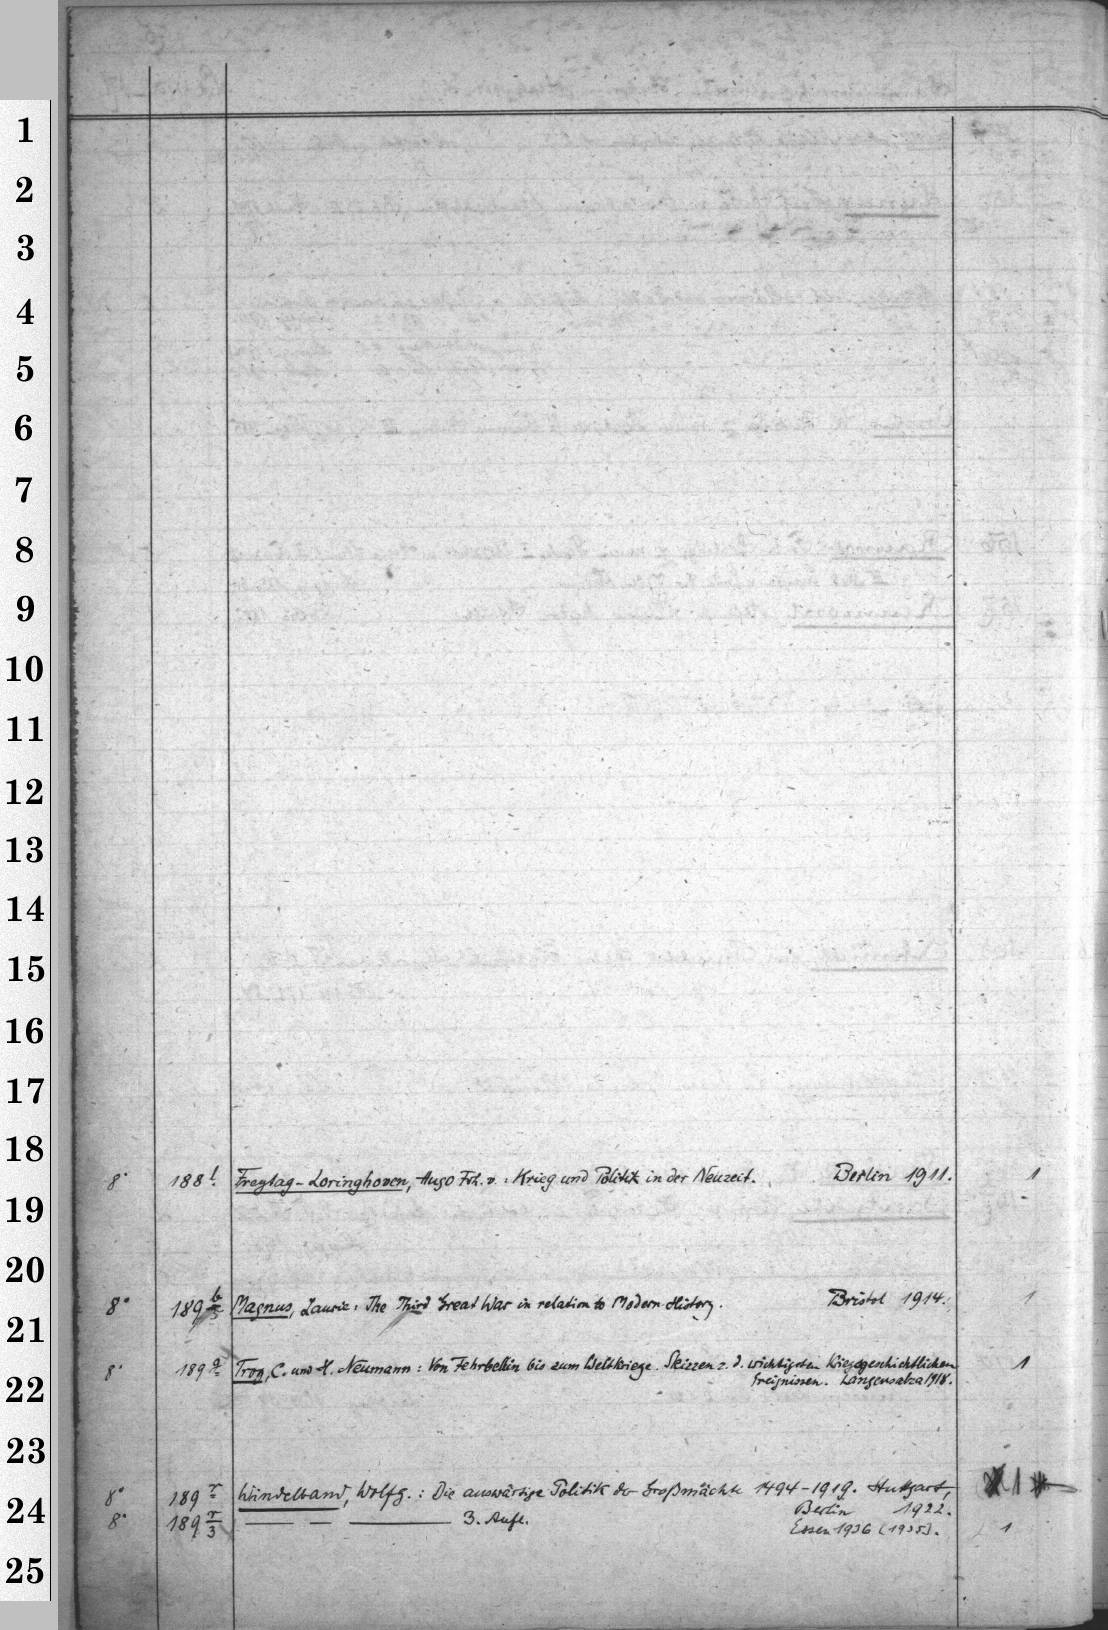 1
2
3
4
5
6
7
8
9
10
11
12
13
14
15
16
17
18
8° 188 l Freytag-Loringhoven, Hugo Frh. v.: Krieg und Politik in der Neuzeit. Berlin 1911. 1
19
20
8° 189 Magnus, Laurie: The Third Great War in relation to Modern History. Bristol 1914. 1
21
8° 189 q Trog, C. und H. Neumann: Von Fehrbellin bis zum Weltkriege. Skizzen z. d. wichtigsten Kriegsgeschichtlichen 1
22
Ereignissen. Langensalza 1918.
23
8° 189 r Windelband, Wolfg.: Die auswärtige Politik der Großmächte 1494-1919. Stuttgart, 1
24
Berlin 1922.
8° 189 r/3 — — — 3. Aufl. Essen 1936 (1935). 1
25